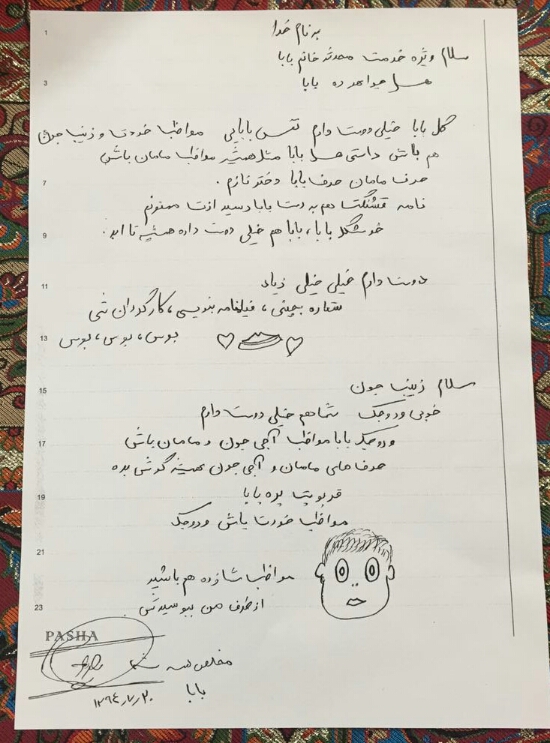 به نام خدا
سلام ویژه خدمت محدثه خانم بابا
عسل بابا
گل بابا خیلی دوست دارم نفس بابایی مواظب خودت و زینب جون
هم باش راستی عسل بابا مثل همیشه مواظب مامان باش
حرف مامان حرف بابا دختر نازم.
نامه قشنگت هم به دست بابا رسید ازت ممنونم
خوشگل بابا، بابا هم خیلی دوست داره همیشه تا ابد.
دوست دارم خیلی خیلی زیاد
ستاره بچینی، فیلمنامه بنویسی، کارگردان شی
بوس، بوس، بوس
سلام زینب جون
خوبی وروجک شما هم خیلی دوست دارم
وروجک بابا مواظب آجی جون و مامان باش
حرف های مامان و آجی جون همیشه گوش بده
قربونت بره بابا
مواظب خودت باش وروجک
مواظب شازده هم باشید
از طرف من ببوسیدش
PASHA
مخلص همه شما
بابا
۱۳۹۴٫۷٫۲۰
1
3
7
9
11
13
15
17
19
21
23